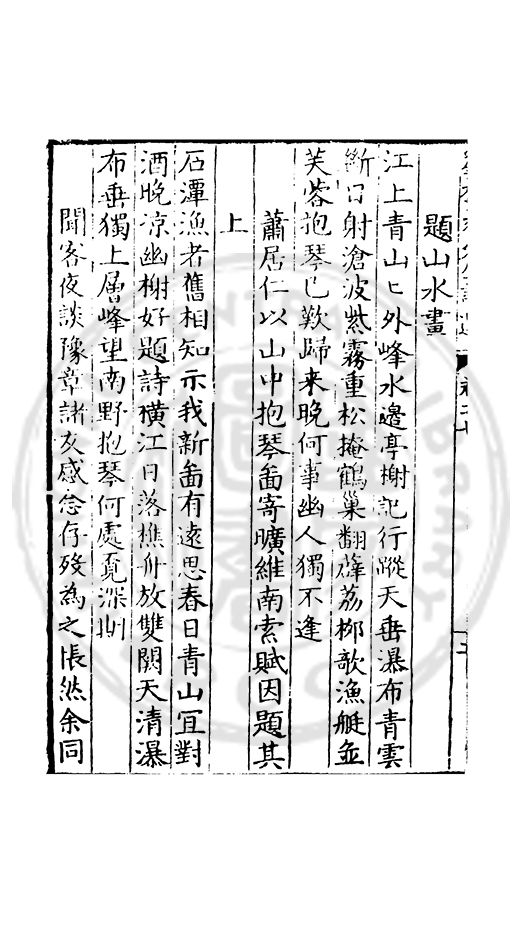 題山水畫
江上青山山外峰水邊亭榭記行蹤天垂瀑布青雲
斷日射滄波紫霧重松掩鶴巢翻薜荔柳歌漁艇並
芙蓉抱琴已歎歸來晚何事幽人獨不逢
蕭居仁以山中抱琴畵寄曠維南索賦因題其
上
石潭漁者舊相知示我新畵有遠思春日青山宜對
酒晚涼幽榭好題詩橫江日落樵舟放雙闕天清瀑
布垂獨上層峰望南野抱琴何處覓深期
聞客夜談豫章諸友感念存歿為之悵然余同